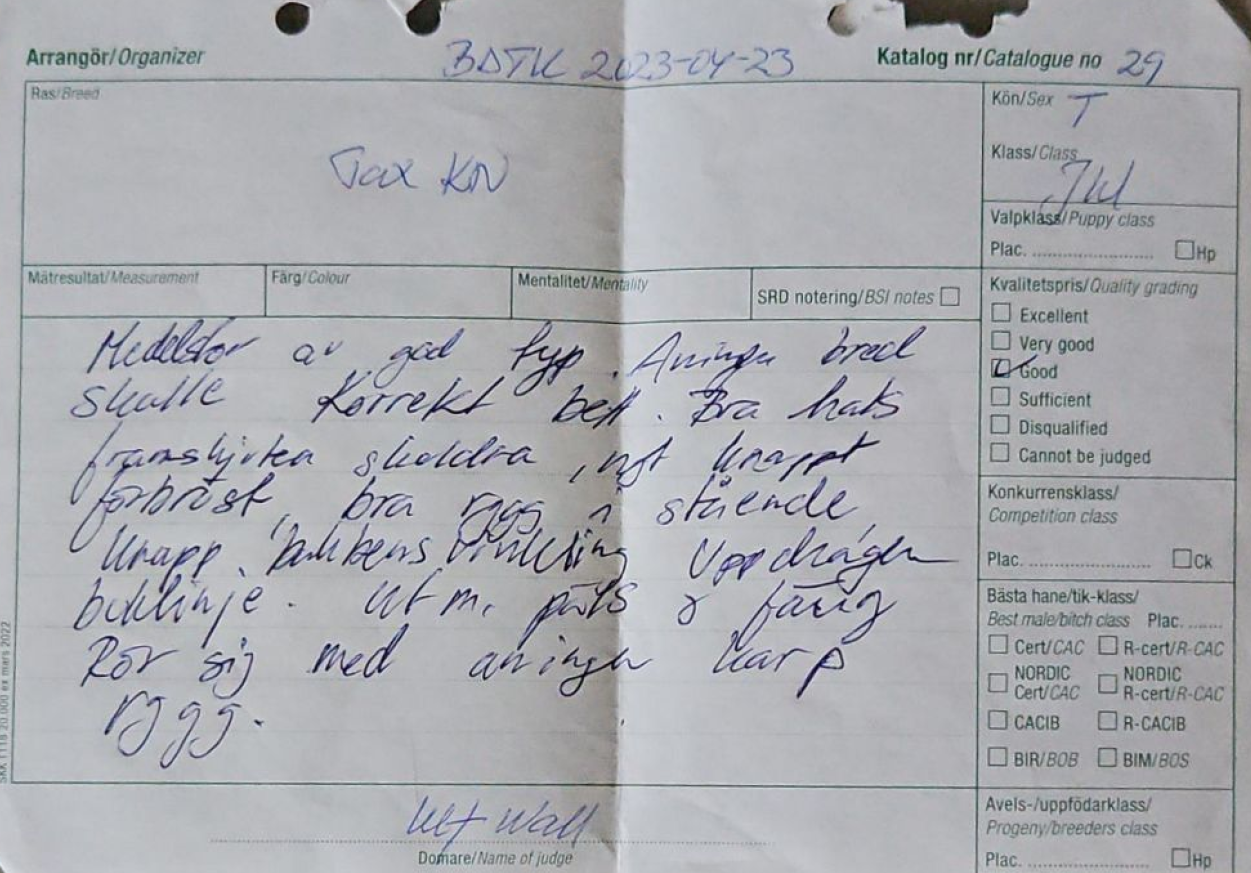 Arrangör/Organizer BDTK 2023-04-23 Katalog nr/Catalogue no 29
Ras/Breed
Tax KN
Kön/Sex T
Klass/Class
Jkl
Valpklass/Puppy class
Plac. .......................... Hp
Mätresultat/Measurement Färg/Colour Mentalitet/Mentality SRD notering/BSI notes
Kvalitetspris/Quality grading
Excellent
Very good
Good
Sufficient
Disqualified
Cannot be judged
Konkurrensklass/
Competition class
Plac. .......................... Ck
Bästa hane/tik-klass/
Best male/bitch class Plac. .......
Cert/CAC R-cert/R-CAC
NORDIC NORDIC
Cert/CAC R-cert/R-CAC
CACIB R-CACIB
BIR/BOB BIM/BOS
Avels-/uppfödarklass/
Progeny/breeders class
Plac. .......................... Hp
Medelstor av god typ. Aningen bred
skalle Korrekt bett. Bra hals
framskjuten skuldra, ngt knappt
förbröst, bra rygg i stående,
knapp bakbensvinkling Uppdragen
buklinje. Ut m. päls o färg
Rör sig med aningen karp
rygg.
Ulf Wall
Domare/Name of judge
SKK 1118 20.000 ex mars 2022